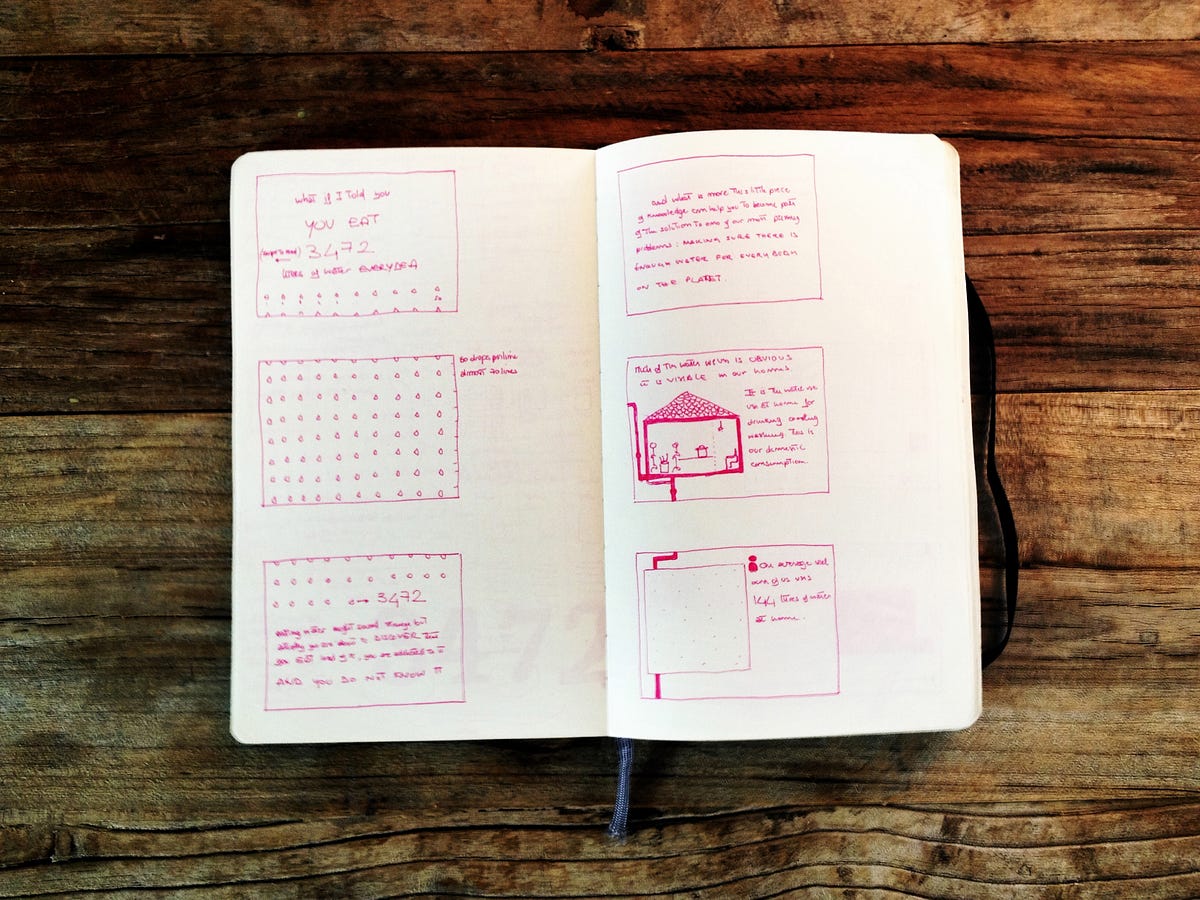 what if I told you
YOU EAT
3472
litres of water EVERYDEA
50 drops per line
almost 70 lines
3472
eating water might sound strange but
actually you are about to DISCOVER that
you EAT
AND YOU DO NOT KNOW IT
and what is more this little piece
of knowledge can help you to become part
of the solution to one of our most pressing
problems: MAKING SURE THERE IS
ENOUGH WATER FOR EVERYBODY
ON THE PLANET.
Much of the water we use is OBVIOUS
it is VISIBLE in our homes.
It is the water we
use at home for
drinking cooking
washing this is
our domestic
consumption.
On average
each of us uses
144 litres of water
at home.